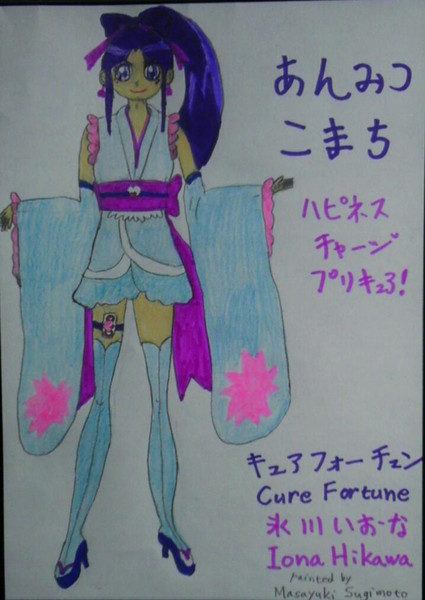 あんみつ
こまち
ハピネス
チャージ
プリキュア!
キュアフォーチュン
Cure Fortune
氷川いおな
Iona Hikawa
Painted by
Masayuki Sugimoto